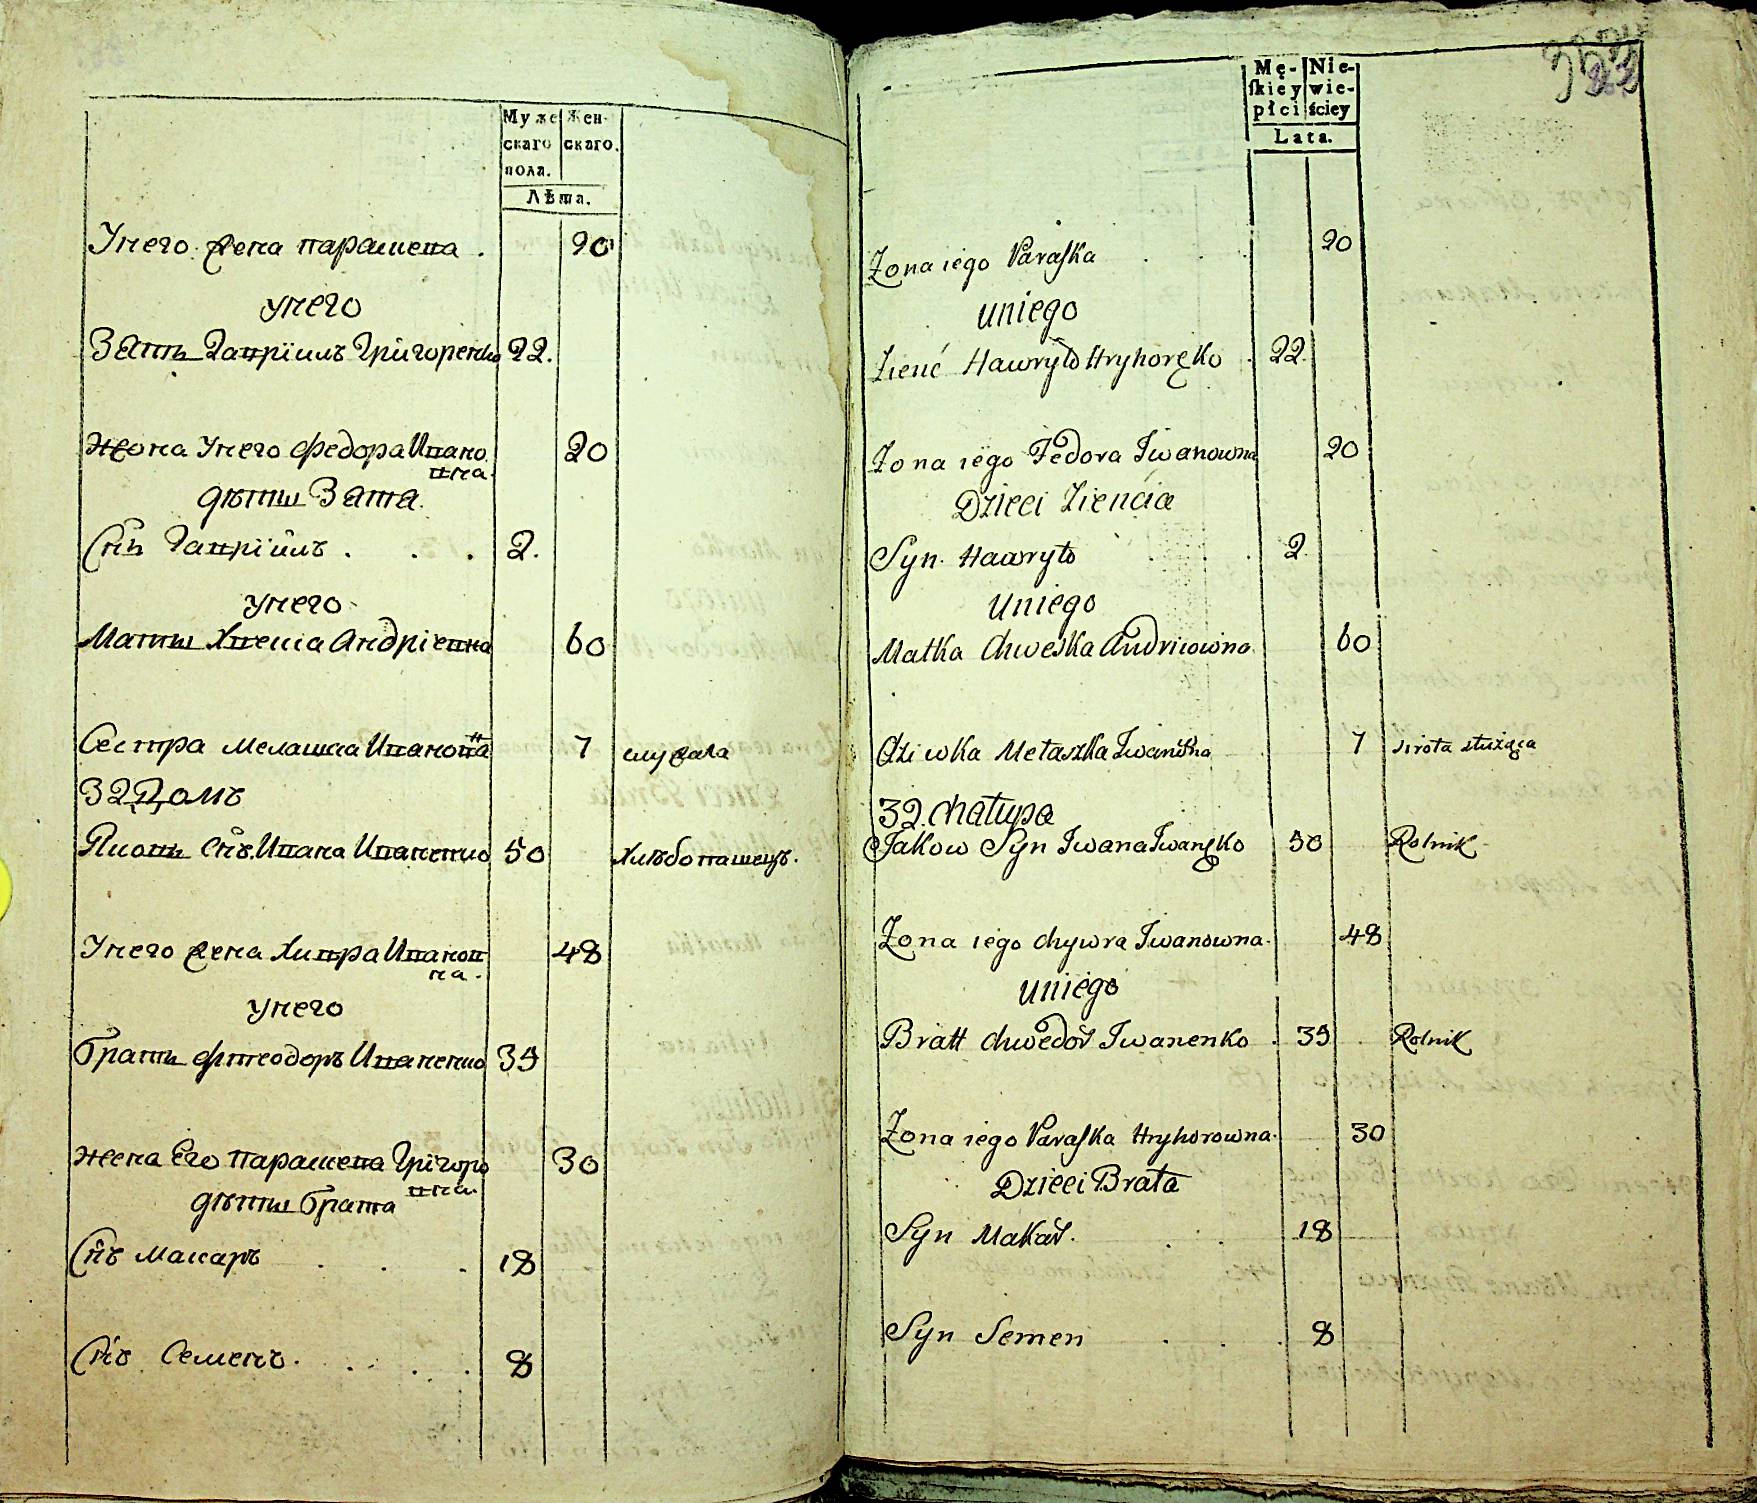 Муже Жен-
скаго скаго.
пола.
Лѣта.
Унего жена парашека . 20
унего
Зать Гаврiилъ Григоренко 22.
жона Унего федора Ивано
вна. 20
дѣти Затя.
Снъ Гаврiилъ . . . 2.
унего
Мать Хвеска Андрiевна 60
Сестра мелашка Ивановна 7 служала
32 Домъ
Яковъ Снъ Ивана Иваненко 50 Хлѣбопашецъ.
Унего жена Хивра Иванов
на. 48
унего
братъ фтеодоръ Иваненко 35
жена Его парашека Григоро
вна. 30
дѣти брата
Снъ макаръ . . . 18
Снъ Семенъ . . . 8
Mę- Nie-
skiey wie-
płci ściey
Lata.
Zona iego Paraska . . . 20
uniego
Zienć Hawryło Hryhoręko . 22.
Zona iego Fedora Iwanowna 20
Dzieci Ziencia
Syn Hawryło . . . 2
uniego
Matka Chweska Andriiowna 60
dziwka Mełaszka Iwanowna 7 sirota służąca
32. chatupa
Jakow Syn Iwana Iwanęko 50 Rolnik
Zona iego chywra Iwanowna. 48
uniego
Bratt chwedor Iwanenko . 35 . Rolnik
Zona iego Paraska Hryhorowna. 30
Dzieci Brata
Syn Makar. . . 18
Syn Semen . . . 8